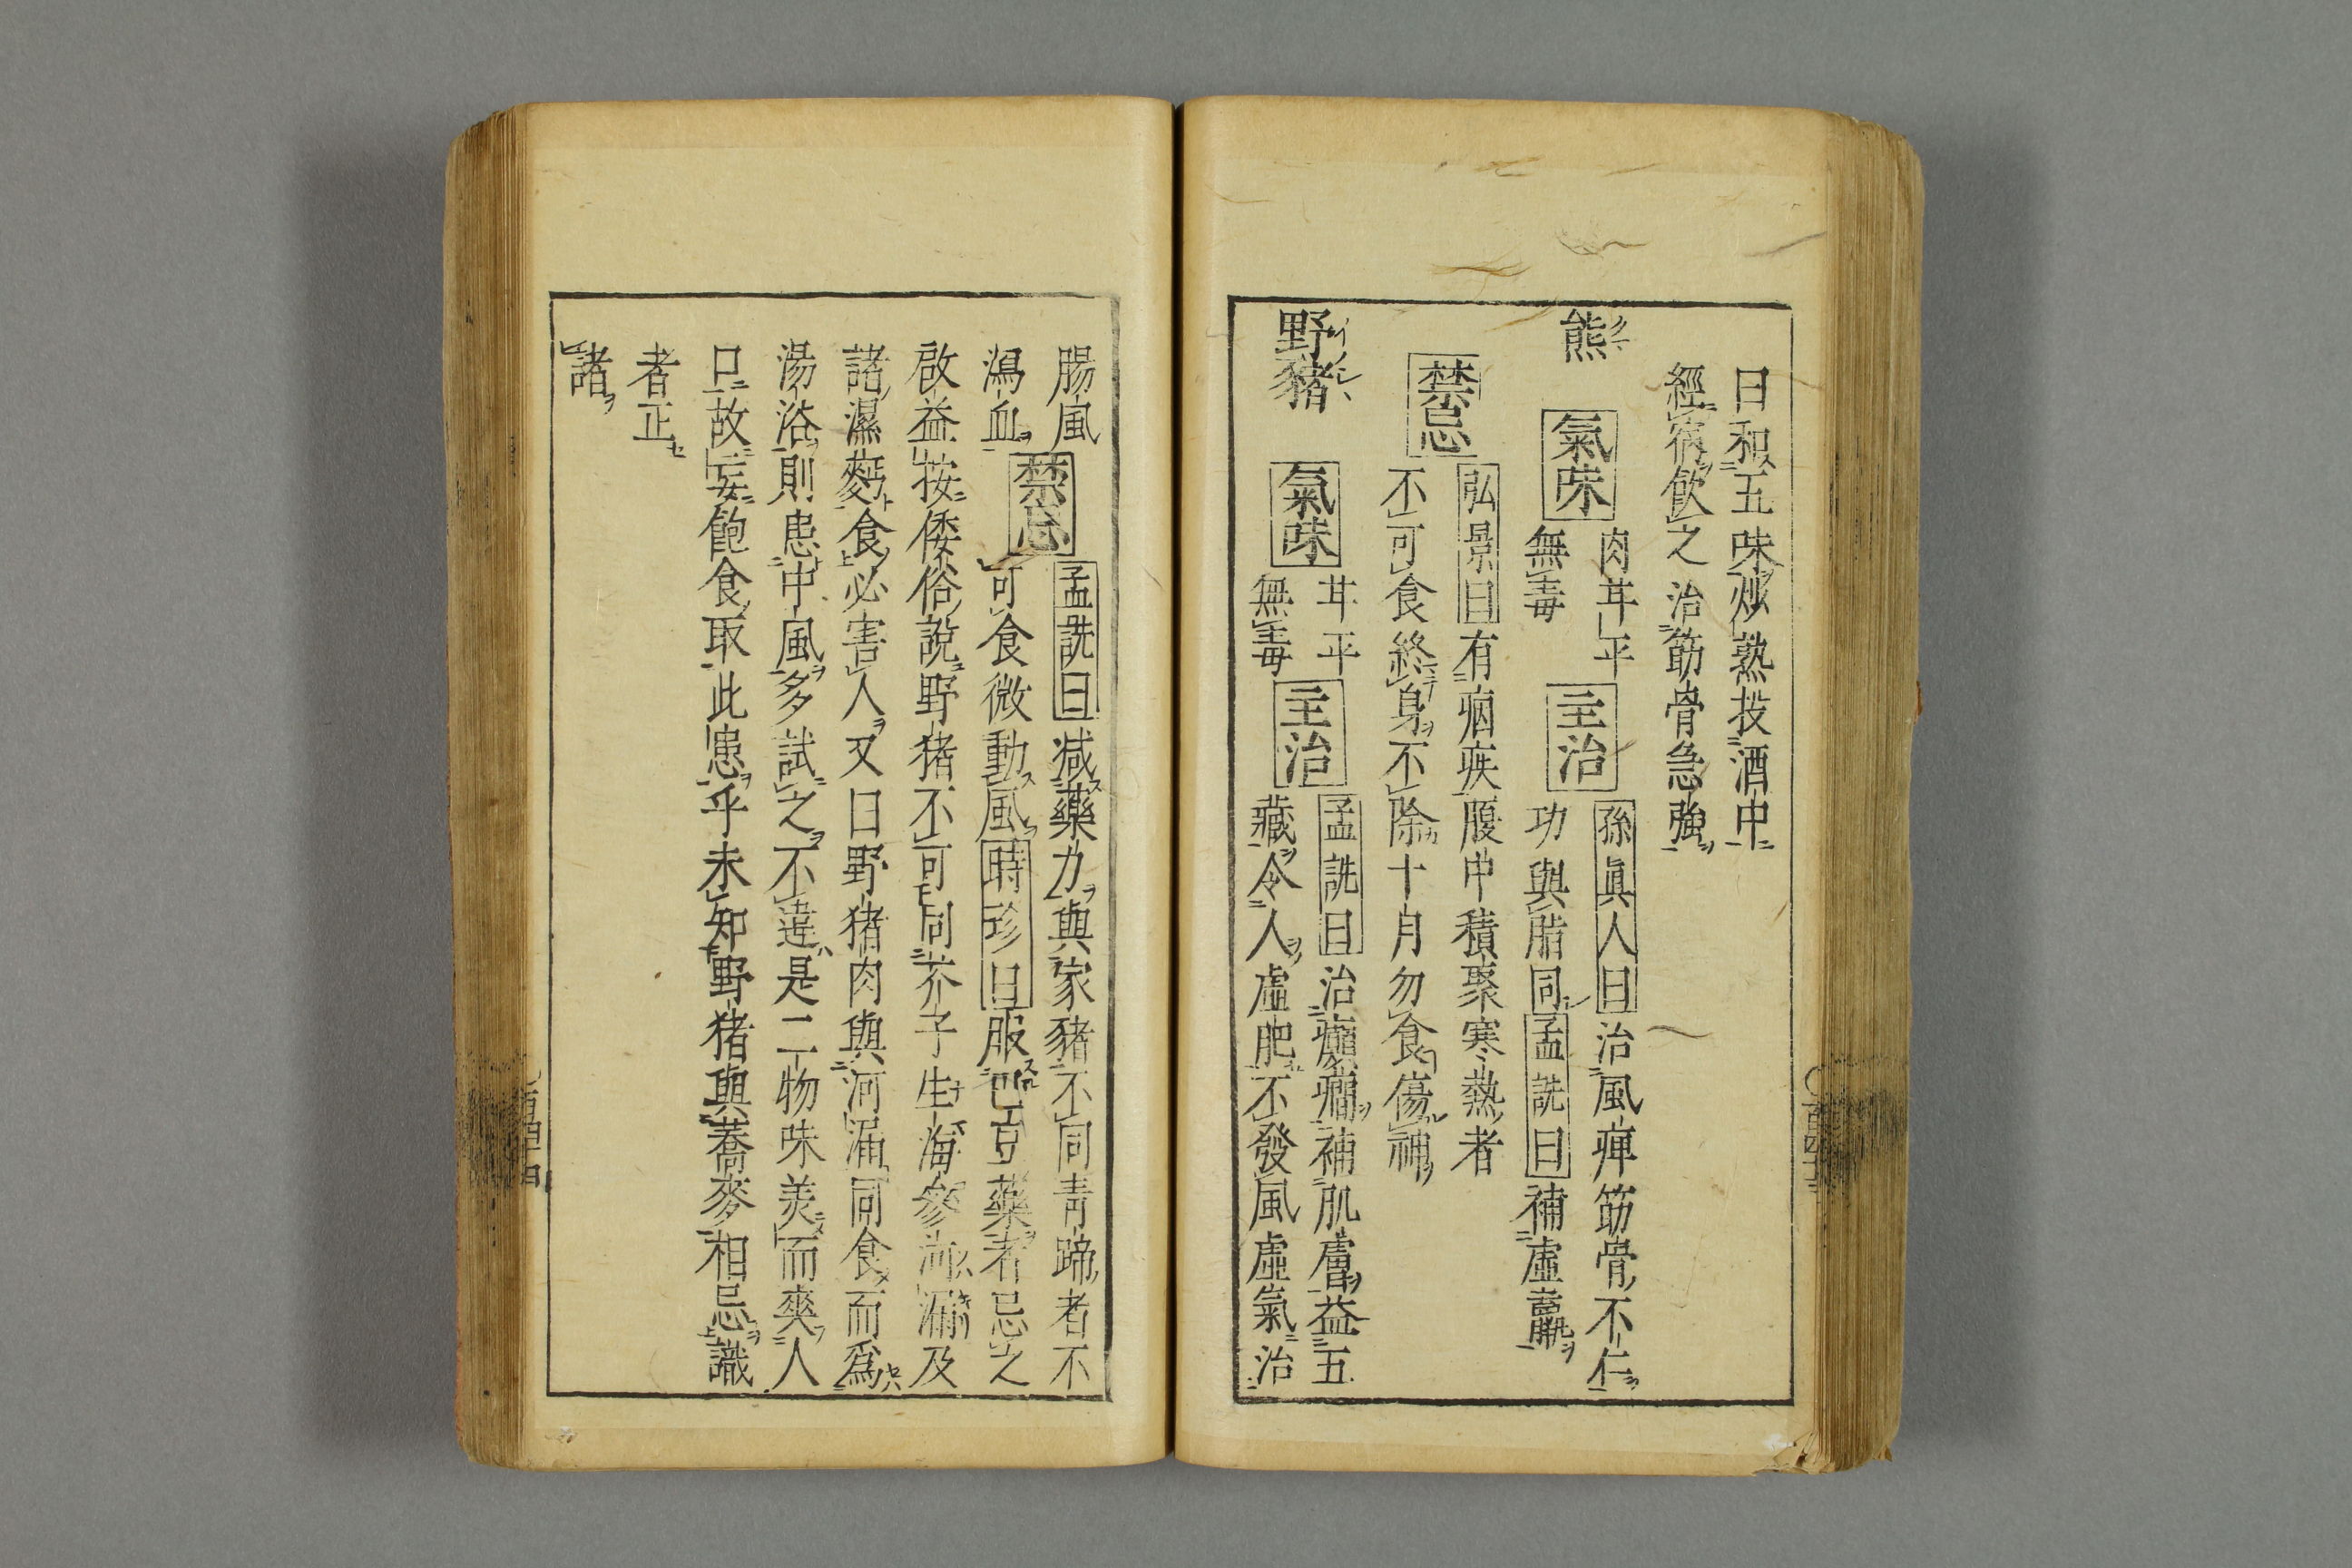 曰和五味炒熟投酒中
經宿飲之治筋骨急強
熊
氣味
肉甘平
無毒
主治
孫眞人曰治風痺筋骨不仁
功與脂同孟詵曰補虛羸
禁忌
弘景曰有痼疾腹中積聚寒熱者
不可食終身不除十月勿食傷神
野豬
氣味
甘平
無毒
主治
孟詵曰治癲癇補肌膚益五
藏令人虛肥不發風虛氣治
腸風
瀉血
禁忌
孟詵曰減藥力與家豬不同青蹄者不
可食微動風時珍曰服巴豆藥者忌之
啟益按倭俗說野猪不可同芥子生海參海漏及
諸濕麪食必害人又曰野猪肉與河漏同食而爲
湯浴則患中風多試之不違是二物味美而爽人
口故妄飽食取此患乎未知野猪與蕎麥相忌識
者正
諸